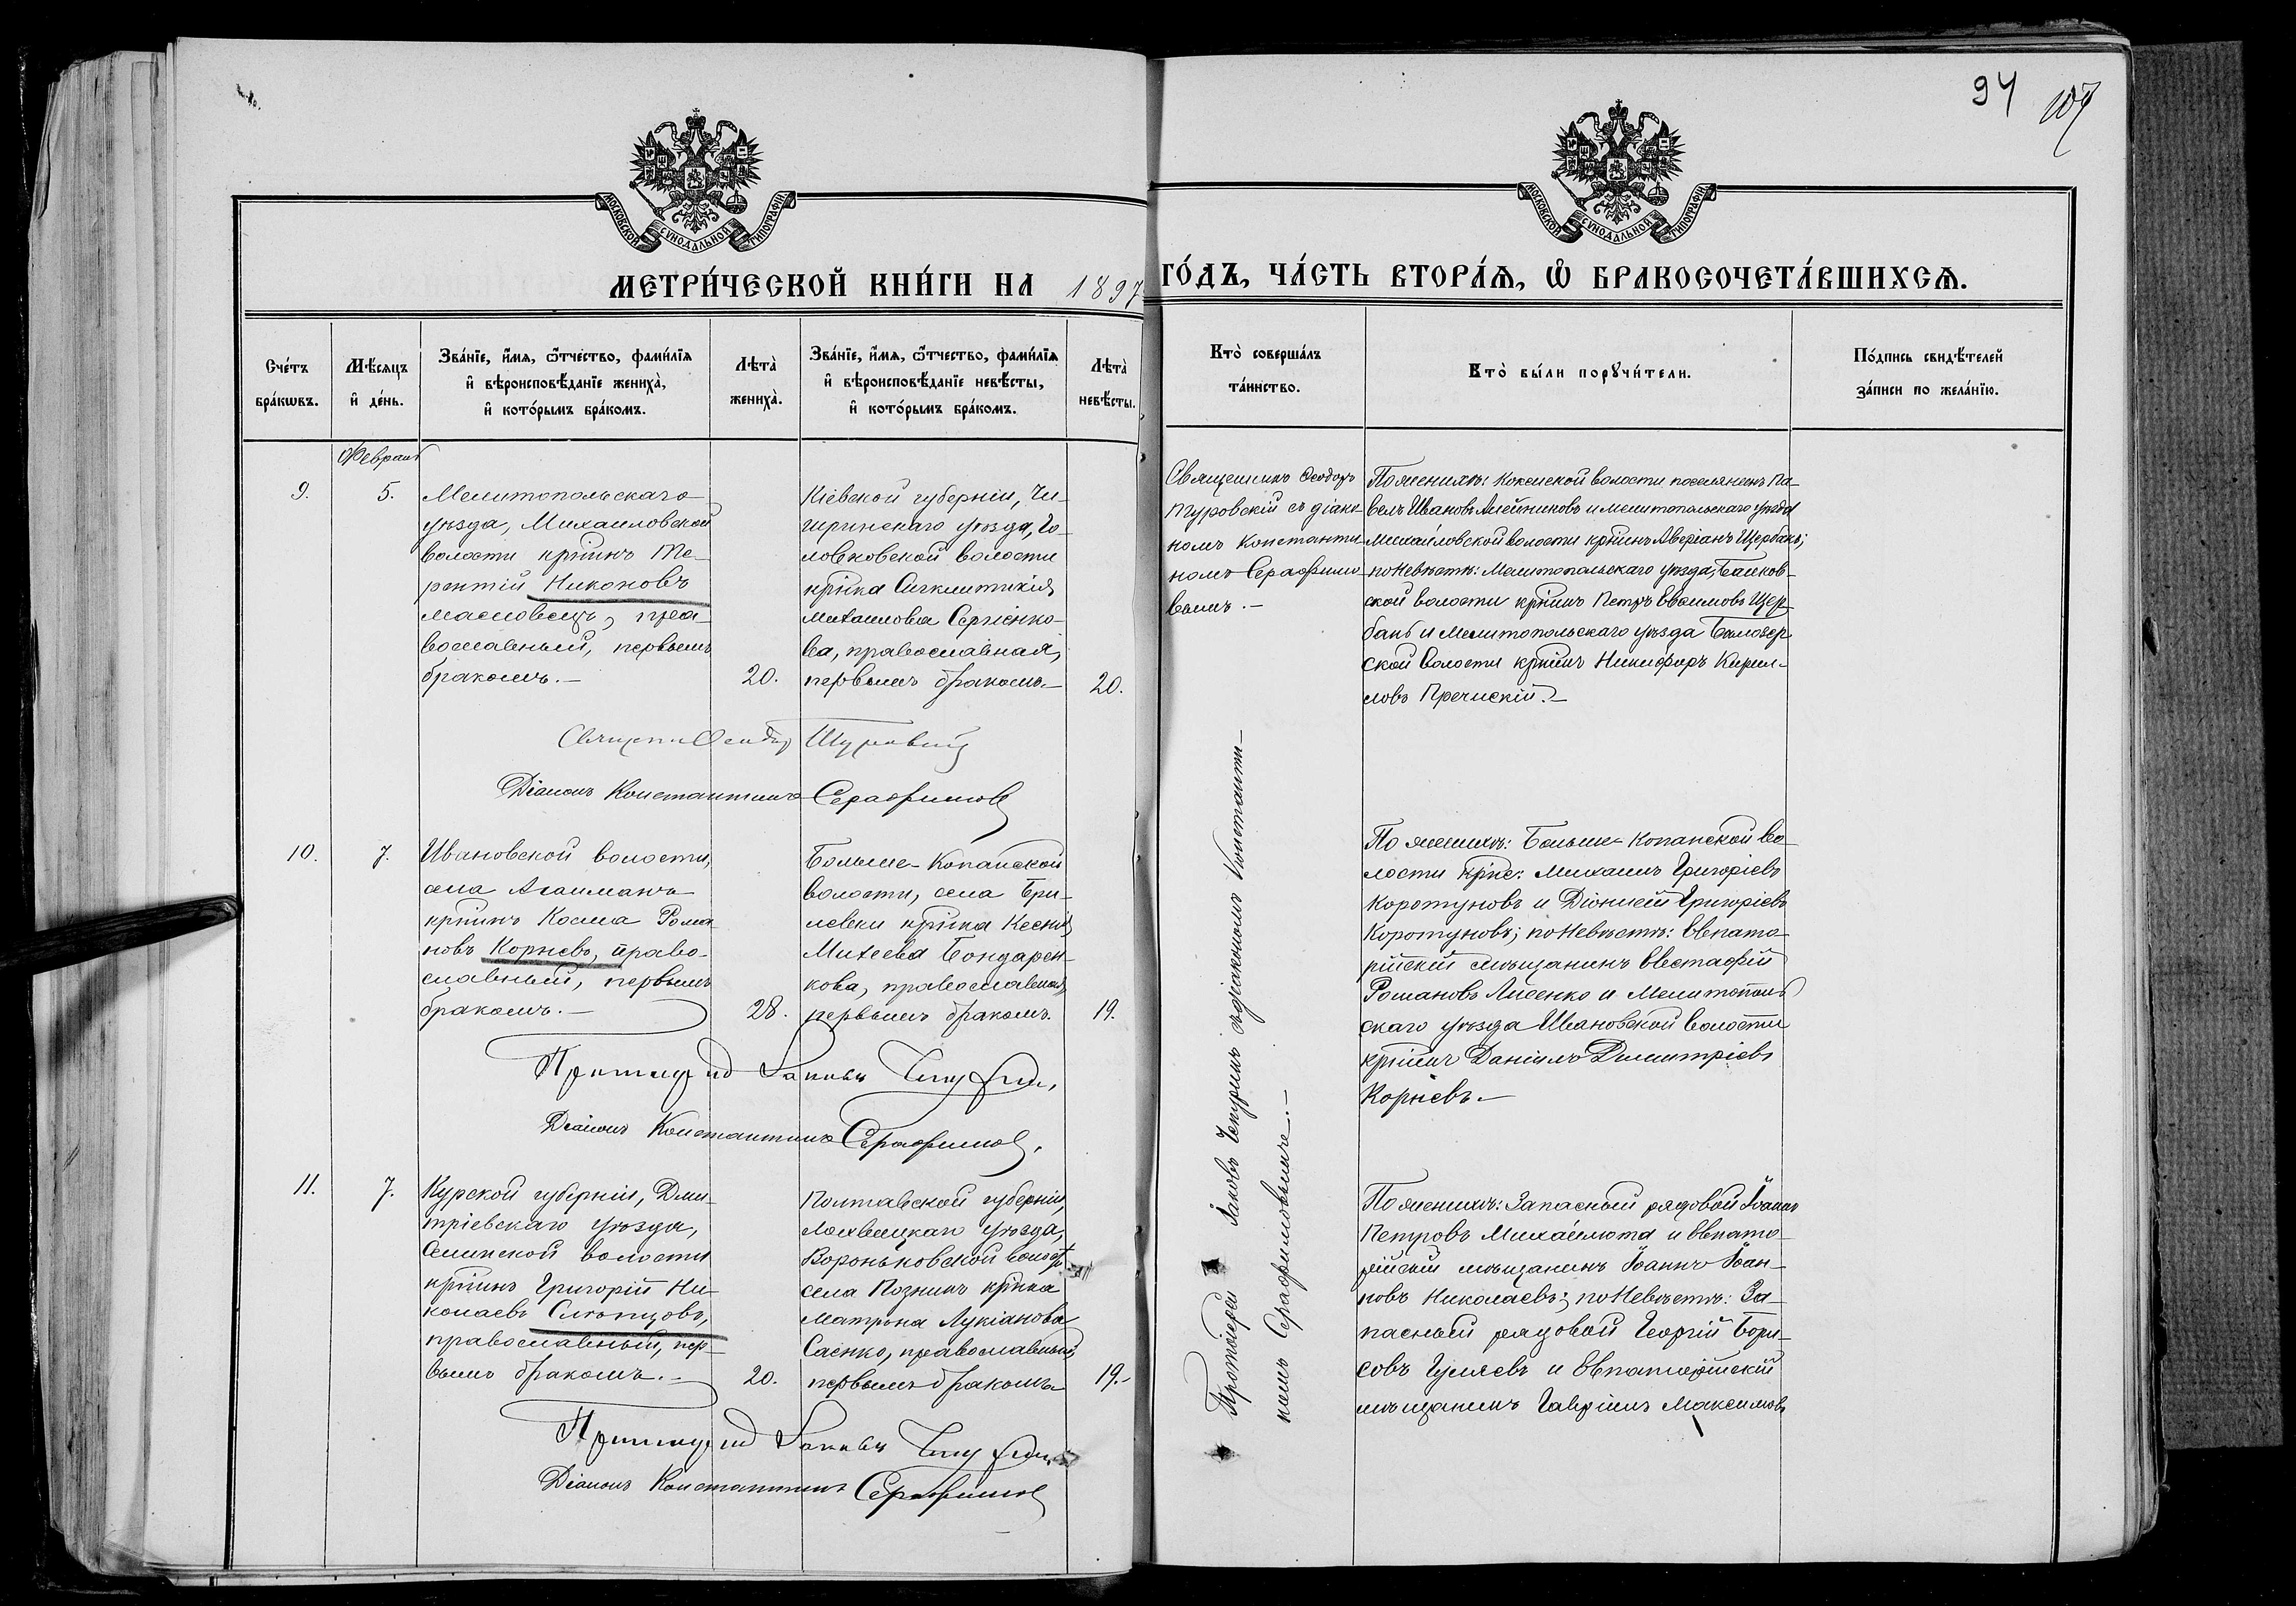 94
107
МОСКОВСКОЙ СѴНОДАЛЬНОЙ ТИПОГРАФІИ
МОСКОВСКОЙ СѴНОДАЛЬНОЙ ТИПОГРАФІИ
МЕТРИ́ЧЕСКОЙ КНИ́ГИ НА 1897 ГО́ДЪ, ЧА́СТЬ ВТОРА́Ѧ, Ѡ҆ БРАКОСОЧЕТА́ВШИХСѦ.
Сче́тъ
бра́кѡвъ.
Мѣ́сѧцъ
и҆ де́нь.
Зва́нїе, и҆́мѧ, ѻ҆́тчество, фами́лїѧ
и҆ вѣроисповѣ́данїе жениха̀,
и҆ кото́рымъ бра́комъ.
Лѣта̀
жениха̀.
Зва́нїе, и҆́мѧ, ѻ҆́тчество, фами́лїѧ
и҆ вѣроисповѣ́данїе невѣ́сты,
и҆ кото́рымъ бра́комъ.
Лѣта̀
невѣ́сты.
Кто̀ соверша́лъ
та́инство.
Кто̀ бы́ли порꙋчи́тели.
По́дпись свидѣ́телей
за́писи по жела́нїю.
Февраль
9.
5.
Мелитопольскаго
уѣзда, Михаиловской
волости крїинъ Те-
рентій Никоновъ
Масловецъ, пра-
вославный, первымъ
бракомъ.—
20.
Кіевской губерніи, Чи-
гиринскаго уѣзда, Го-
ловковской волости
крїнка
Михаилова Сергіенко-
ва, православная,
первымъ бракомъ.—
20.
Священникъ Ѳеодоръ
Туровскій съ діако-
номъ Константи-
номъ Серафимо-
вымъ.—
По женихѣ: Кокской волости поселянинъ Па-
велъ Ивановъ Алейниковъ и Мелитопольскаго уѣзда
Михайловской волости крїинъ Аверіанъ Щербань;
по невѣстѣ: Мелитопольскаго уѣзда,
ской волости крїинъ Петръ Евѳимовъ Щер-
бань и Мелитопольскаго уѣзда Бѣлозер-
ской волости крїинъ Никифоръ Кирил-
ловъ
Діаконъ Константинъ Серафимовъ
10.
7.
Ивановской волости,
села Агаиманъ
крїинъ Косма Рома-
новъ Корневъ, право-
славный, первымъ
бракомъ.—
28.
Больше-Копанской
волости, села Бри-
левки крїнка Ксенія
Михеева Бондарен-
кова, православная,
первымъ бракомъ.
19.
Протоіерей Іаковъ Чепуринъ съ діакономъ Константи-
номъ Серафимовымъ.—
По женихѣ: Больше-Копанской во-
лости крне: Михаилъ Григоріевъ
Коротуновъ и Діонисій Григоріевъ
Коротуновъ; по невѣстѣ: Евпато-
рійскій мѣщанинъ Евстафій
Романовъ Лисенко и Мелитополь-
скаго уѣзда Ивановской волости
крїинъ Даніилъ Димитріевъ
Корневъ.—
Протоіерей Іаковъ Чепуринъ,
Діаконъ Константинъ Серафимовъ.
11.
7.
Курской губерніи, Дми-
тріевскаго уѣзда,
волости
крїинъ Григорій Ни-
колаевъ Слѣпцовъ,
православный, пер-
вымъ бракомъ.—
20.
Полтавской губерніи,
Лохвицкаго уѣзда,
Вороньковской волост.
села Позникъ крїнка
Матрона Лукіанова
Саенко, православная,
первымъ бракомъ
19.-
По женихѣ: Запасный рядовой Іоаннъ
Петровъ Михайлюта и Евпато-
рійскій мѣщанинъ Іоаннъ Іоан-
новъ Николаевъ; по невѣстѣ: За-
пасный рядовой Георгій Бори-
совъ Гуляевъ и Евпаторійскій
мѣщанинъ Гавріилъ Максимовъ
Протоіерей Іаковъ Чепуринъ
Діаконъ Константинъ Серафимовъ